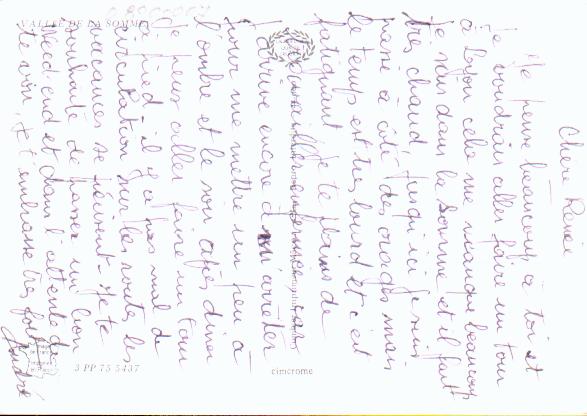 Chère Renée
Je pense beaucoup à toi et
je voudrais aller faire un tour
à Lyon cela me manque beaucoup
Je suis dans la Somme et il fait
très chaud jusqu'ici je suis
passé à côté des orages mais
le temps est très lourd et c'est
fatiguant je te plains de
travailler car
j'arrive encore à m'arrêter
pour me mettre un peu à
l'ombre et le soir après diner
je peux aller faire un tour
à pied - il y a pas mal de
circulation sur les routes, les
vacances se suivent - je te
souhaite de passer un bon
week end et dans l'attente de
te voir, je t'embrasse très fort
André
VALLÉE DE LA SOMME
3 PP 75 5437
cimcrome